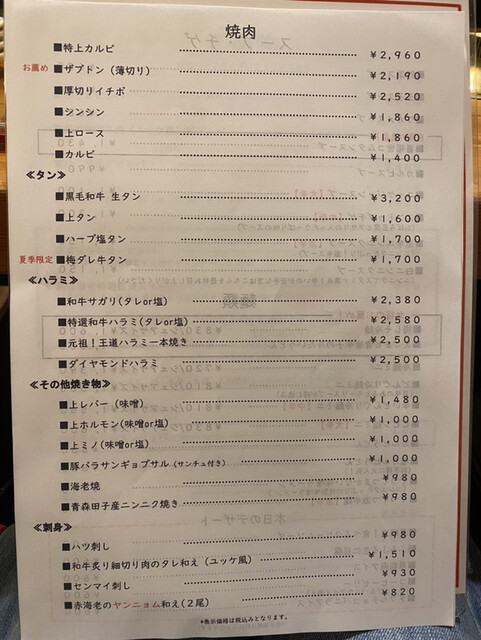 焼肉
■特上カルビ ¥2,960
お薦め ■ザブトン（薄切り） ¥2,190
■厚切りイチボ ¥2,520
■シンシン ¥1,860
■上ロース ¥1,860
■カルビ ¥1,400
≪タン≫
■黒毛和牛 生タン ¥3,200
■上タン ¥1,600
■ハーブ塩タン ¥1,700
夏季限定 ■梅ダレ牛タン ¥1,700
≪ハラミ≫
■和牛サガリ(タレor塩) ¥2,380
■特選和牛ハラミ(タレor塩) ¥2,580
■元祖！王道ハラミ一本焼き ¥2,500
■ダイヤモンドハラミ ¥2,500
≪その他焼き物≫
■上レバー（味噌） ¥1,480
■上ホルモン(味噌or塩) ¥1,000
■上ミノ(味噌or塩) ¥1,000
■豚バラサンギョプサル（サンチュ付き） ¥1,000
■海老焼 ¥980
■青森田子産ニンニク焼き ¥980
≪刺身≫
■ハツ刺し ¥980
■和牛炙り細切り肉のタレ和え（ユッケ風） ¥1,510
■センマイ刺し ¥930
■赤海老のヤンニョム和え(２尾) ¥820
*表示価格は税込みとなります。